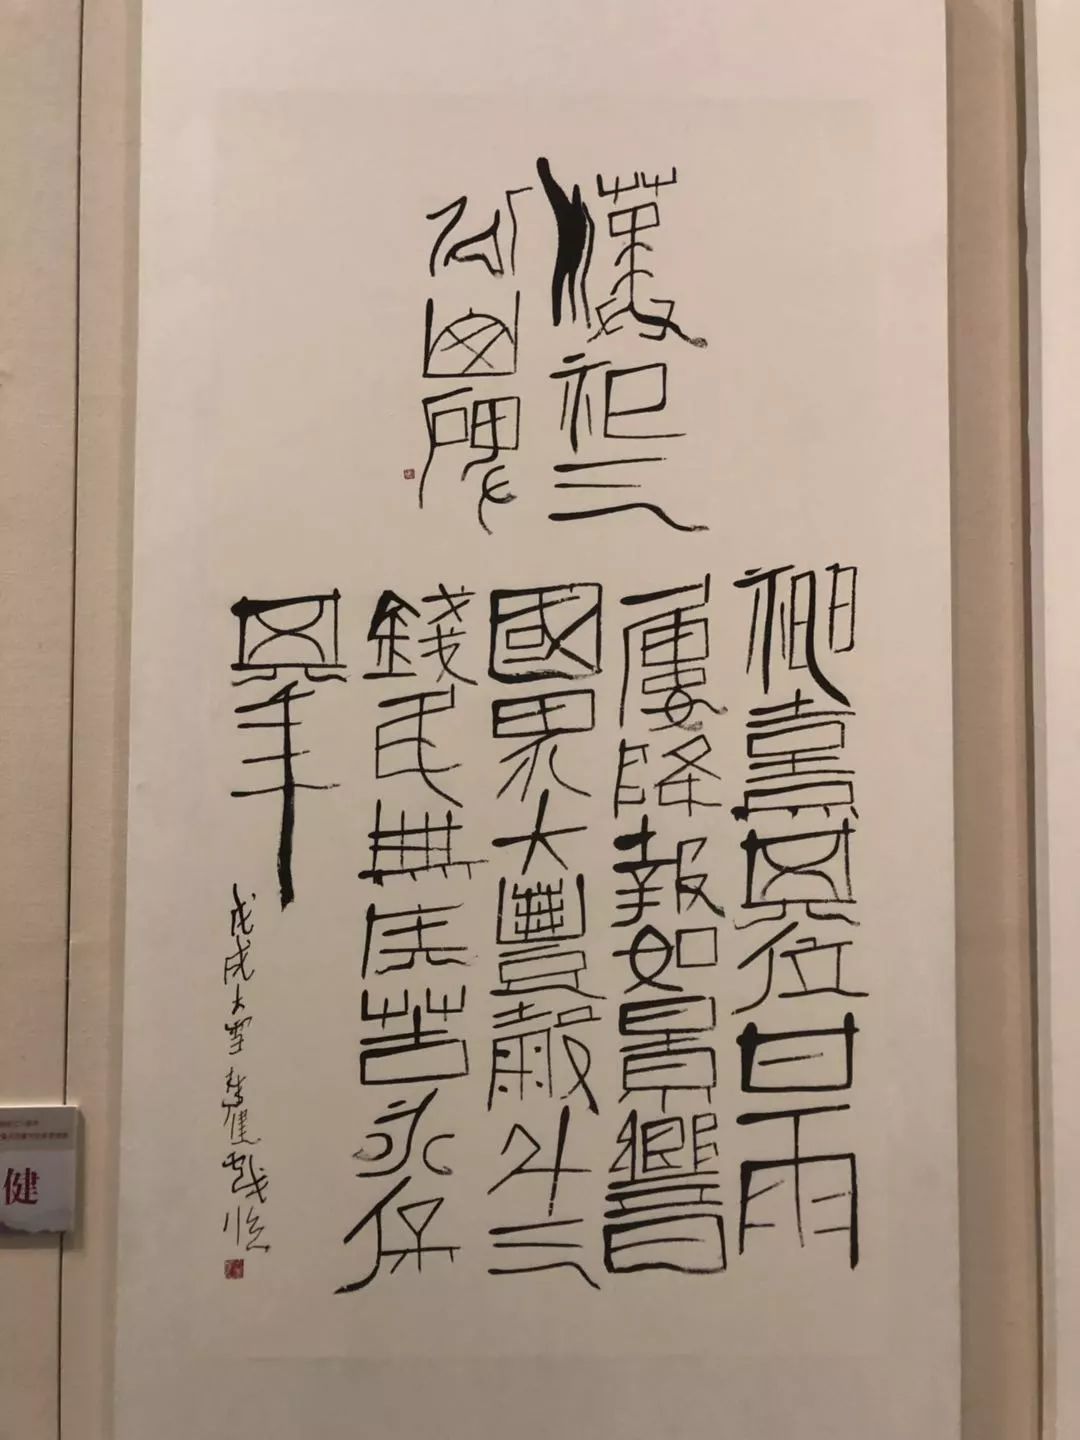 漢祀三
公山碑
神熹其位甘雨
屢降報如景響
國界大豐穀斗三
錢民無疾苦永保
其年
戊戌大雪 健戲臨
健